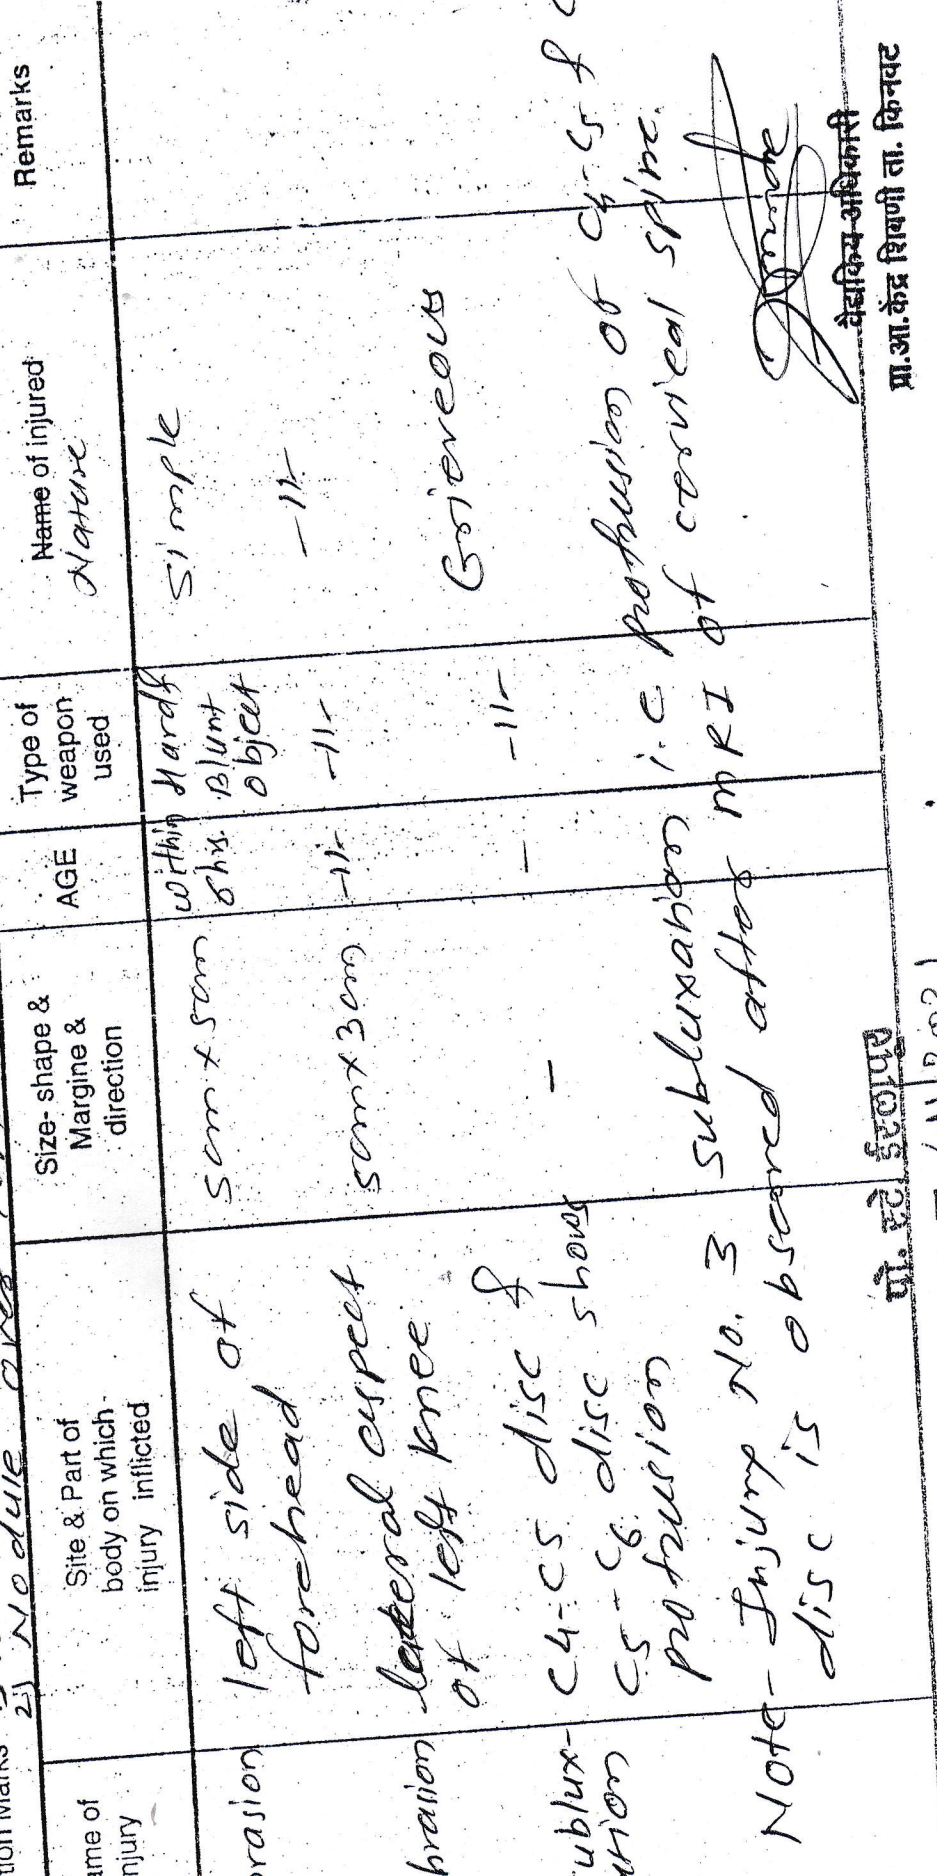 2) Nodule over
ame of
njury
Site & Part of
body on which
injury inflicted
Size- shape &
Margine &
direction
AGE
Type of
weapon
used
Name of injured
Nature
Remarks
rasion
left side of
forehead
5cm x 5cm
within
6hrs.
Hard &
Blunt
object
Simple
brasion
lateral aspect
of left knee
5cm x 3cm
-11-
-11-
-11-
ublux-
ation
C4-C5 disc &
C5-C6 disc shows
protrusion
-
-
-11-
Grieveous
Note- Injury No. 3 subluxation i.e protrusion of C4-C5 &
disc is observed after MRI of cervical spine.
वैद्यकिय अधिकारी
प्रा.आ.केंद्र शिवणी ता. किनवट